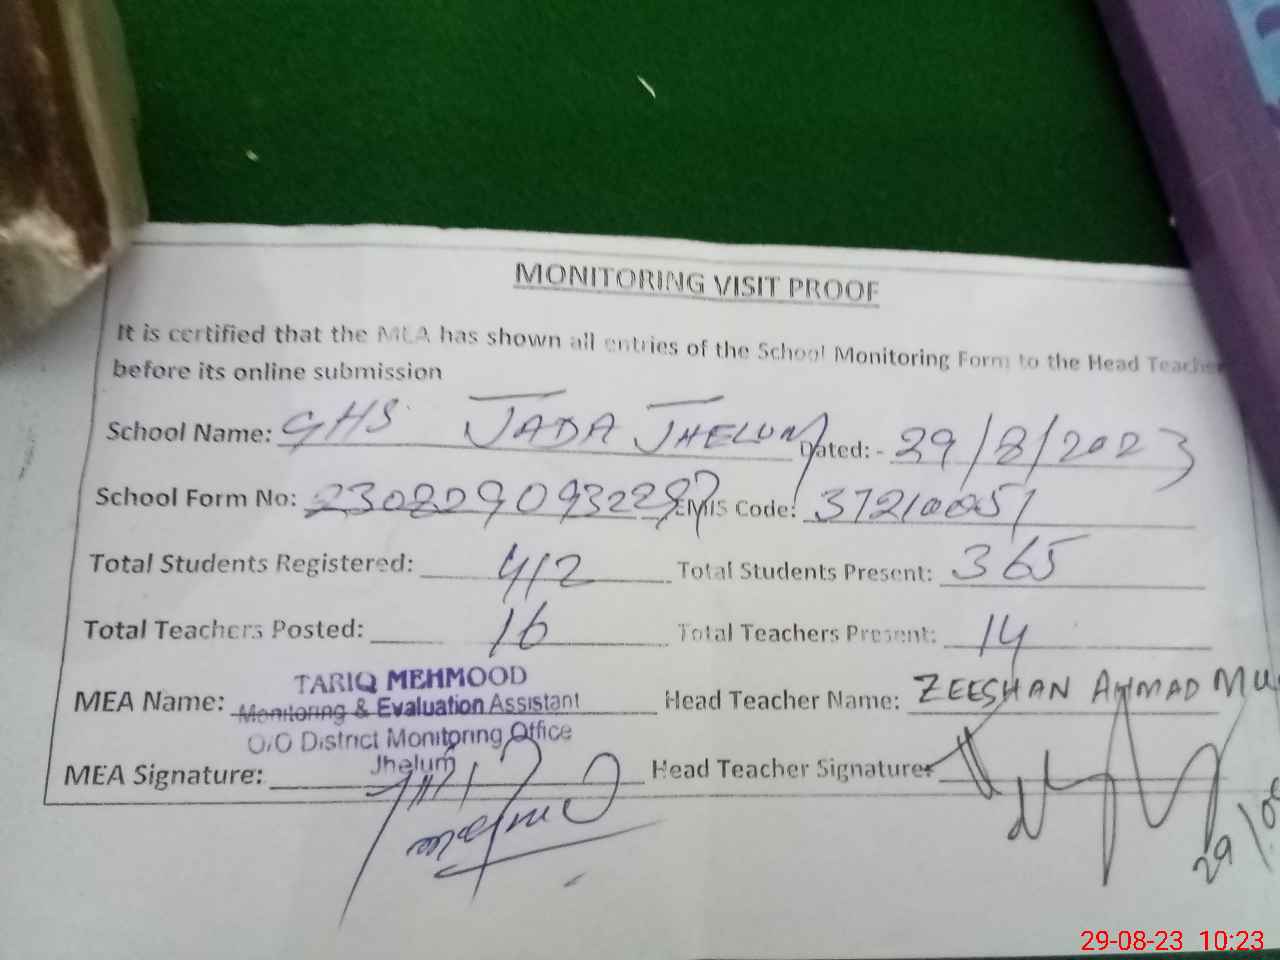 MONITORING VISIT PROOF
It is certified that the MEA has shown all entries of the School Monitoring Form to the Head Teacher
before its online submission
School Name: GHS JADA JHELUM Dated: - 29/8/2023
School Form No: EMIS Code: 37210051
Total Students Registered: 412 Total Students Present: 365
Total Teachers Posted: 16 Total Teachers Present: 14
TARIQ MEHMOOD
MEA Name: Monitoring & Evaluation Assistant Head Teacher Name: ZEESHAN AHMAD MU
O/O District Monitoring Office
Jhelum
MEA Signature: Head Teacher Signature:
29/08
29-08-23 10:23